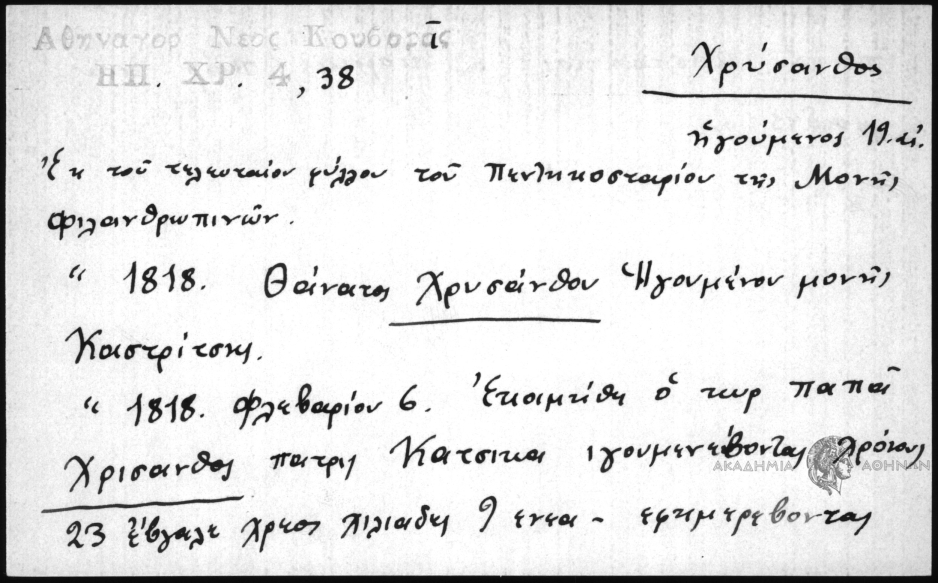 Αθηναγορ Νέος Κουβαράς
ΗΠ. ΧΡ. 4, 38
ī
Χρύσανθος
ἡγούμενος 19. αἰ.
Ἐκ τοῦ τελευταίου φύλλου τοῦ Πεντηκοσταρίου τῆς Μονῆς
Φιλανθρωπινῶν.
“ 1818. Θάνατος Χρυσάνθου Ἡγουμένου μονῆς
Καστρίτσης.
“ 1818. Φλεβαρίου 6. Ἐκαμτίθη ὁ κυρ παπᾶ
Χρισανθος πατρης Κατσικα ιγουμενεβοντας χρόνους
23 ἐβγαλε χρεος χιλιαδες 9 ενεα - εφιμερεβοντας
ΑΚΑΔΗΜΙΑ ΑΘΗΝΩΝ